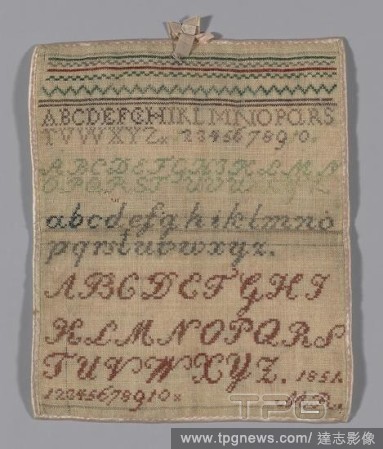 ABCDEFGHIKLMNOPQRS
TVWXYZ. 234567890.
ABCDEFGHIKLMN
OPQRSTUVWXYZ
abcdefghiklmno
pqrstuvwxyz.
ABCDEFGHI
KLMNOPQRS
TUVWXYZ. 1851.
12345678910 M.R.
TPG
www.tpgnews.com/達志影像